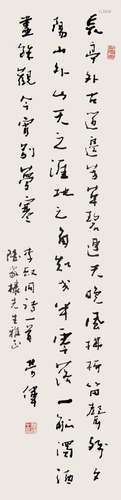 長亭外古道邊芳草碧連天晚風拂柳笛聲殘夕
陽山外山天之涯地之角知交半零落一觚濁酒
盡餘歡今宵別夢寒
李叔同詩一首
先生雅正